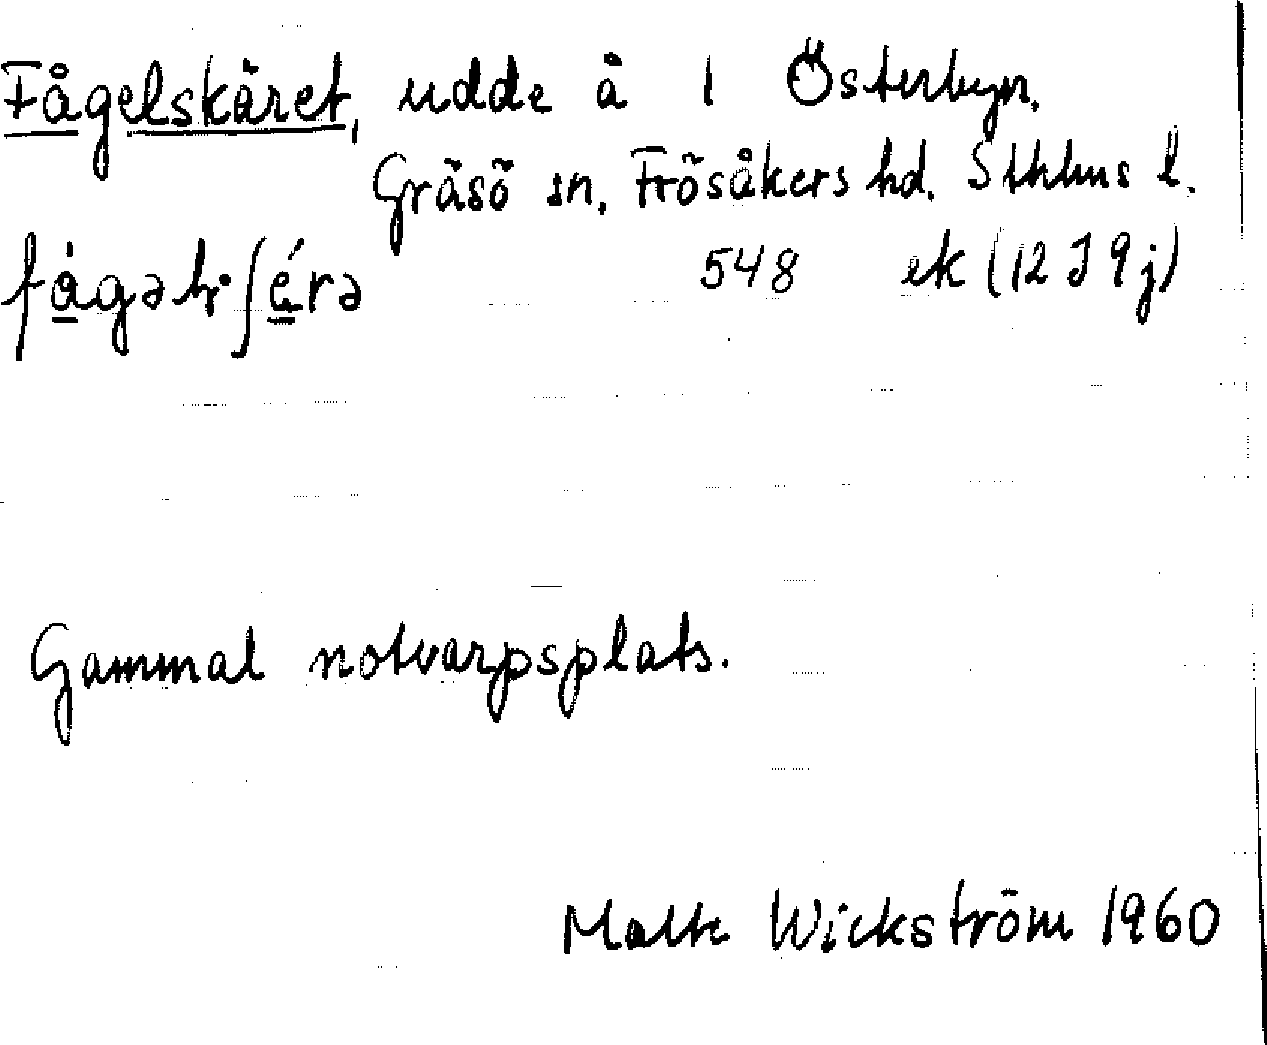 Fågelskäret, udde å 1 Österbyn.
Gräsö sn. Frösåkers hd. Sthlms l.
548 ek (12 J 9 j)
Gammal notvarpsplats.
Malte Wickström 1960